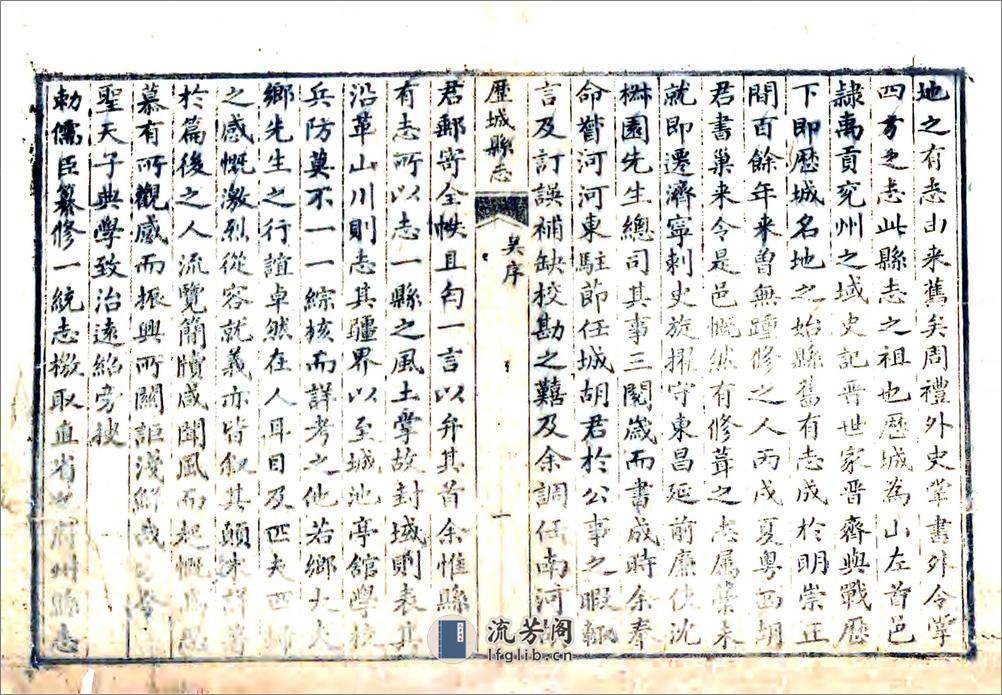 地之有志由来舊矣周禮外史掌書外令掌
四方之志此縣志之祖也歷城為山左首邑
隷禹貢兖州之域史記晋世家晋齊與戰歷
下即歷城名地之始縣舊有志成於明崇正
間百餘年来曾無踵修之人丙戌夏粤西胡
君書巢来令是邑慨然有修葺之志属藁未
就即遷濟寧刺史旋擢守東昌延前廉使沈
椒園先生總司其事三閱歲而書成時余奉
命督河河東駐節任城胡君於公事之暇輙
言及訂誤補缺校勘之難及余調任南河胡
歷城縣志
吴序
一
君郵寄全帙且匄一言以弁其首余惟縣
有志所以志一縣之風土掌故封域則表其
沿革山川則志其疆界以至城池亭舘學校
兵防莫不一一綜核而詳考之他若鄉大夫
鄉先生之行誼卓然在人耳目及匹夫匹婦
之感慨激烈從容就義亦皆叙其顛末詳著
於篇後之人流覽簡牘咸聞風而起慨焉思
慕有所觀感而振興所關詎淺鮮哉今
聖天子典學致治遠紹旁搜
勅儒臣纂修一統志檄取直省府州縣志
流芳阁
lfglib.cn